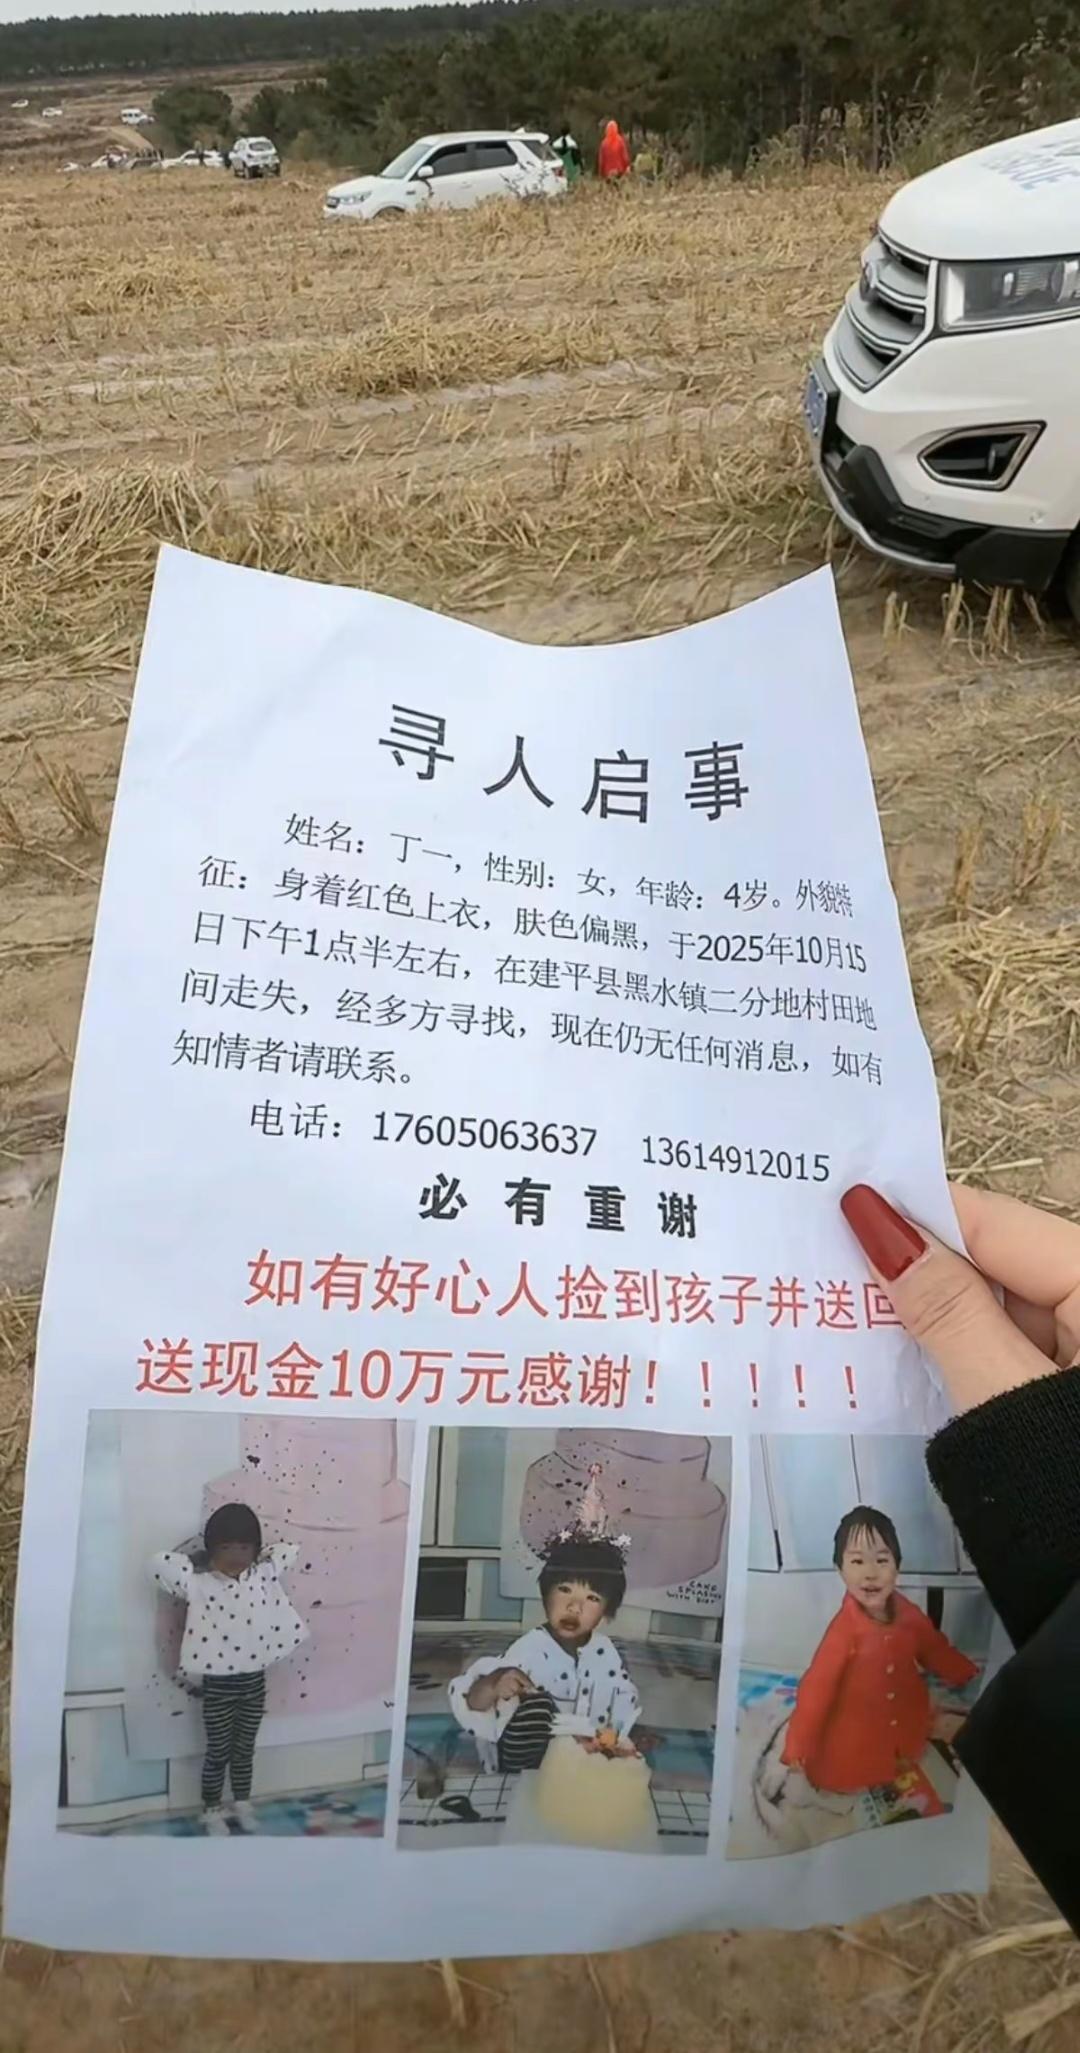 寻人启事
姓名：丁一，性别：女，年龄：4岁。外貌特
征：身着红色上衣，肤色偏黑，于2025年10月15
日下午1点半左右，在建平县黑水镇二分地村田地
间走失，经多方寻找，现在仍无任何消息，如有
知情者请联系。
电话：17605063637 13614912015
必有重谢
如有好心人捡到孩子并送回
送现金10万元感谢！！！！！
CAKE
SPLASH
WITH DIRT